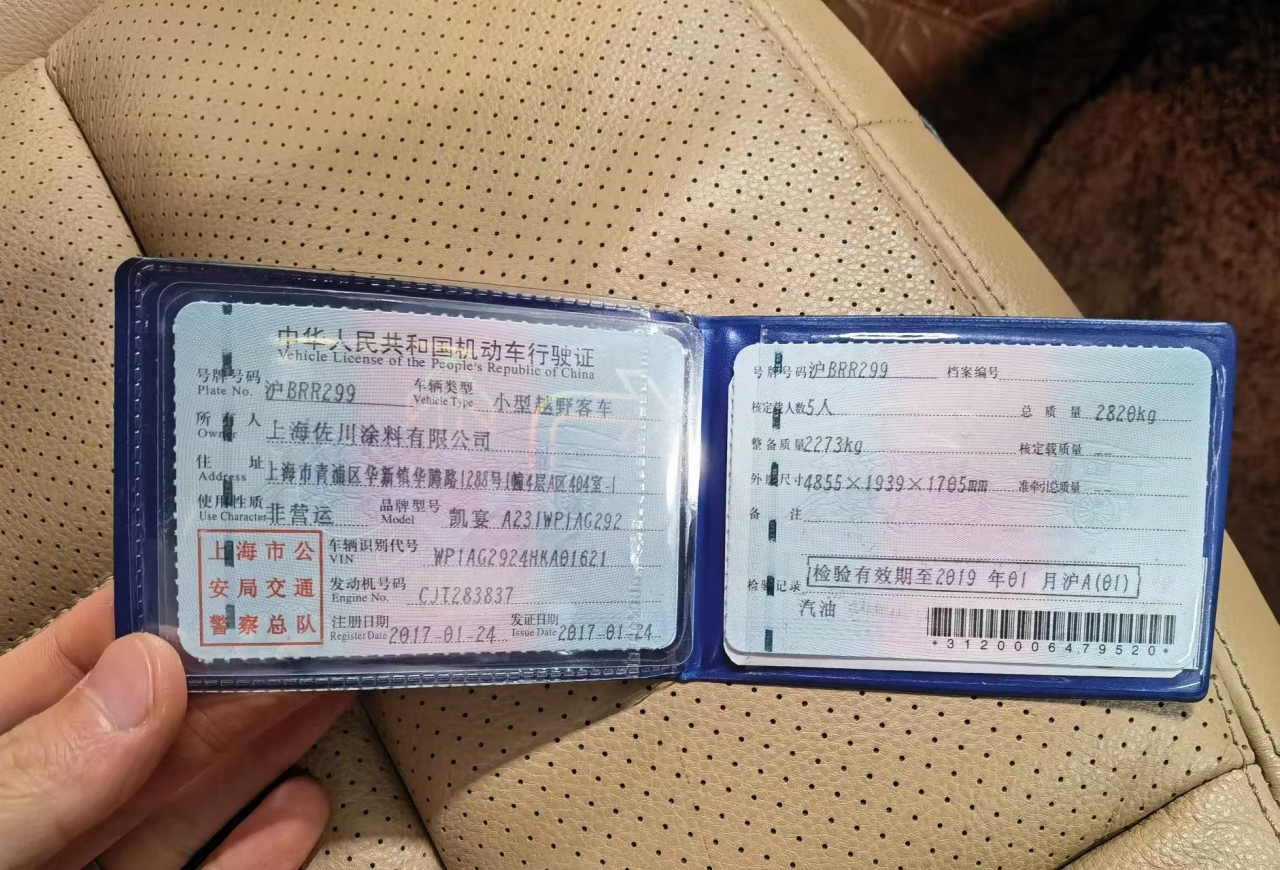 中华人民共和国机动车行驶证
Vehicle License of the People's Republic of China
号牌号码 沪BRR299 车辆类型 小型越野客车
Plate No. Vehicle Type
所有人 上海佐川涂料有限公司
Owner
住址 上海市青浦区华新镇华腾路1288号1幢4层A区404室-1
Address
使用性质 非营运 品牌型号 凯宴 A231WP1AG292
Use Character Model
上海市公
安局交通
警察总队
车辆识别代号 WP1AG2924HKA01621
VIN
发动机号码 CJT283837
Engine No.
注册日期 2017-01-24 发证日期 2017-01-24
Register Date Issue Date
号牌号码 沪BRR299 档案编号
核定载人数 5人 总质量 2820kg
整备质量 2273kg 核定载质量 --
外廓尺寸 4855×1939×1705mm 准牵引总质量
备注
检验记录 检验有效期至2019年01月沪A(01)
汽油
*3120006479520*